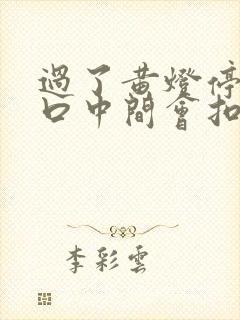 過了黄燈停
口中間會扣
李彩雲